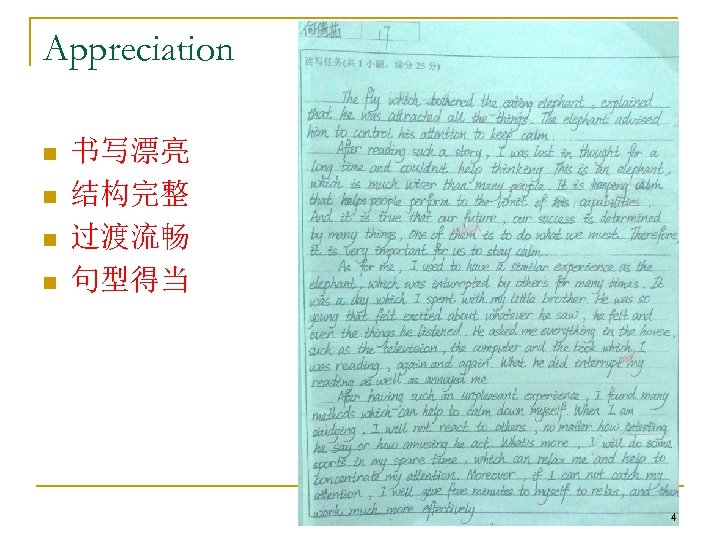 Appreciation
书写漂亮
结构完整
过渡流畅
句型得当
17
读写任务(共1小题，满分25分)
The fly which bothered the eating elephant, explained
that he was attracted all the things. The elephant advised
him to control his attention to keep calm.
After reading such a story, I was lost in thought for a
long time and couldn't help thinking This is an elephant,
which is much wiser than many people. It is keeping calm
that helps people perform to the limit of his capabilities.
And it is true that our future, our success is determined
by many things, one of them is to do what we must. Therefore,
which
it is very important for us to stay calm.
As for me, I used to have a similar experience as the
elephant, which was interrupted by others for many times. It
was a day which I spent with my little brother. He was so
young that felt excited about whatever he saw, he felt and
even the things he listened. He asked me everything in the house,
such as the television, the computer and the book which I
was reading, again and again. What he did interrupt my
ed
reading as well as annoyed me.
After having such an unpleasant experience, I found many
methods which can help to calm down myself. When I am
studying, I will not react to others, no matter how intesting
he say or how amusing he act. What's more, I will do some
sports in my spare time, which can relax me and help to
concentrate my attention. Moreover, if I can not catch my
attention, I will give five minutes to myself to relax, and then
work much more effectively
4